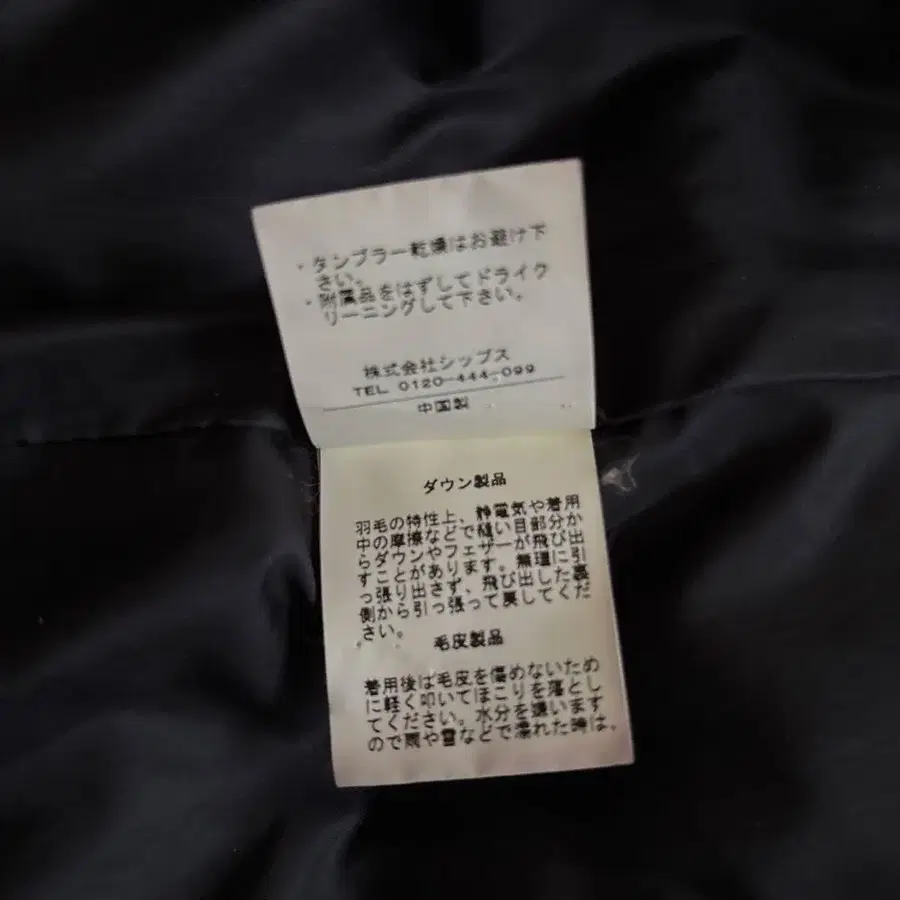 ・タンブラー乾燥はお避け下
さい。
・附属品をはずしてドライク
リーニングして下さい。
株式会社シップス
TEL 0120-444-099
中国製
ダウン製品
羽毛の特性上、静電気や着用
中の摩擦などで縫い目部分か
らダウンやフェザーが飛び出
すことがあります。無理に引
っ張り出さず、飛び出した裏
側から引っ張って戻してくだ
さい。
毛皮製品
着用後は毛皮を傷めないため
に軽く叩いてほこりを落とし
てください。水分を嫌います
ので雨や雪などで濡れた時は、